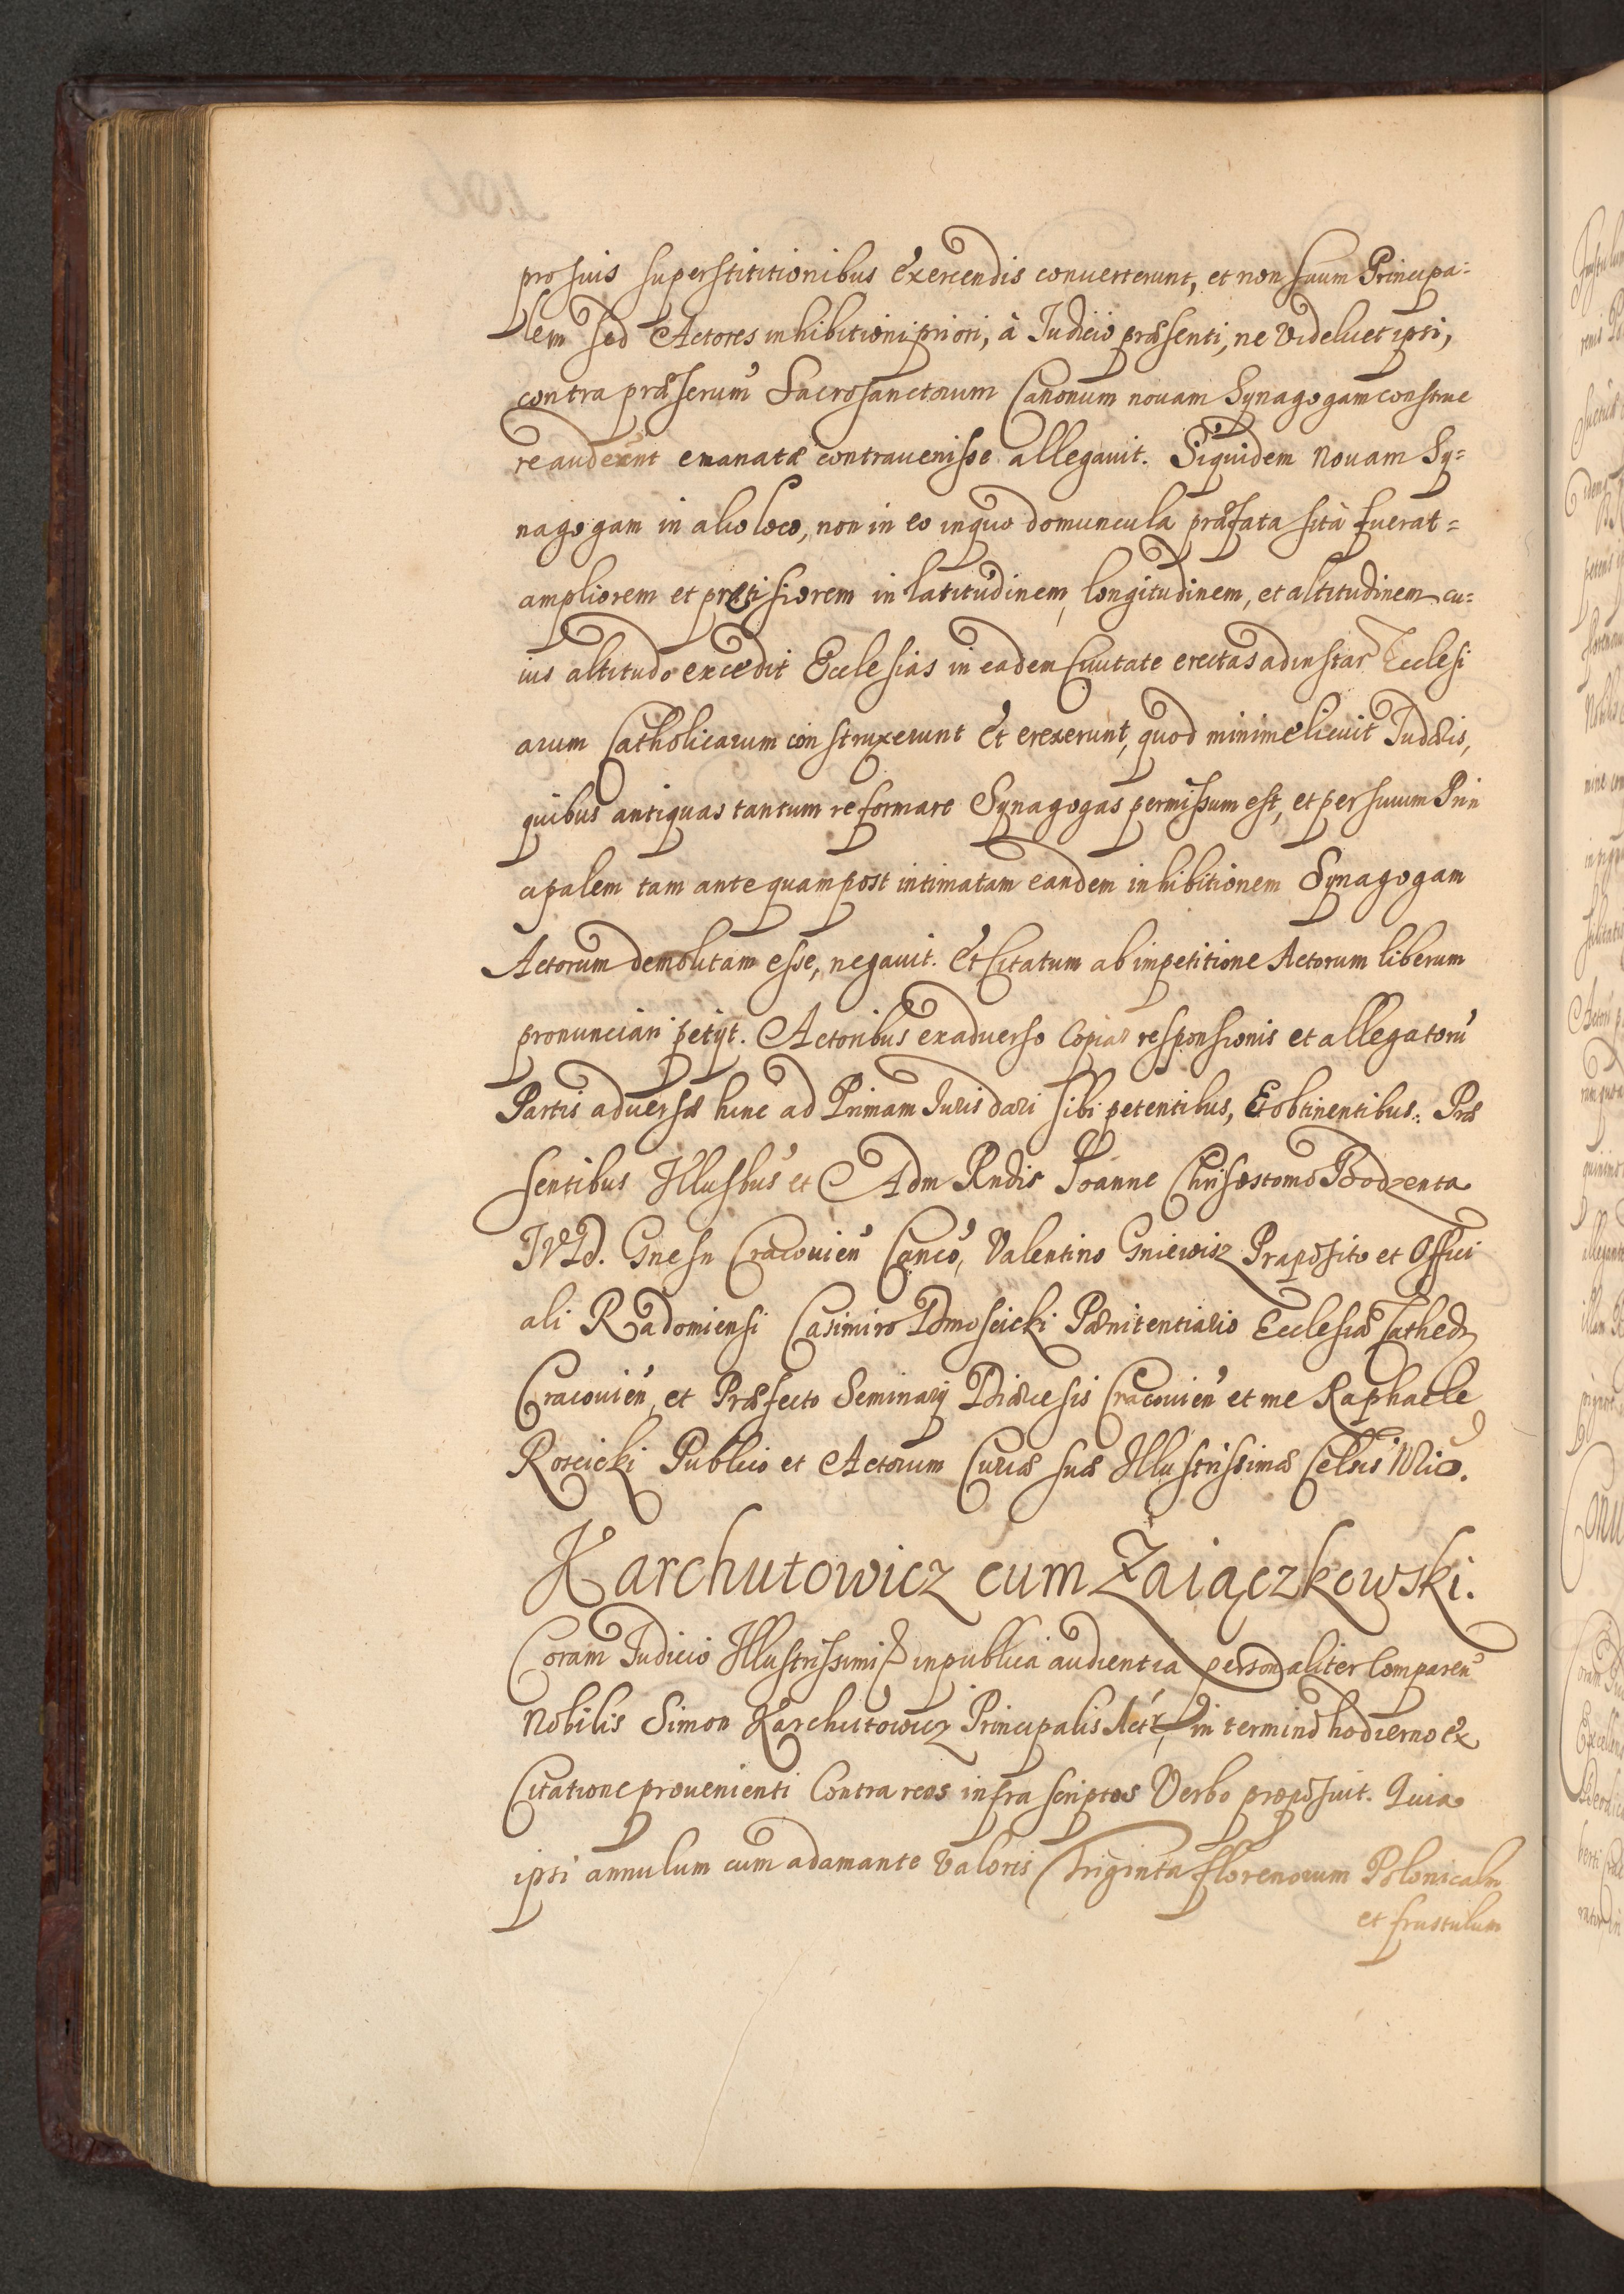 pro suis superstititionibus exercendis conuerterunt, et non suum Principa:
lem sed Actores inhibitioni priori, à Iudicio præsenti, ne videlicet ipsi,
contra præserum̃ Sacrosanctorum Canonum nouam Synagogam construe
re auderent emanatæ contrauenisse allegauit. Siquidem Nouam Sy=
nagogam in alio loco, non in eo in quo domuncula præfata sita fuerat=
ampliorem et prætisiorem in latitudinem, longitudinem, et altitudinem cu:
ius altitudo excedit Ecclesias in eadem Ciuitate erectas ad instar Ecclesi
arum Catholicarum construxerunt Et erexerunt, quod minime licuit Iudæis,
quibus antiquas tantum reformare Synagogas permissum est, et per suum Prin
cipalem tam ante quam post intimatam eandem inhibitionem Synagogam
Actorum demolitam esse, negauit. Et Citatum ab impetitione Actorum liberum
pronunciari petijt. Actoribus ex aduerso Copias responsionis et allegatorũ
Partis aduersæ hinc ad Primam Iuris dari sibi petentibus, Et obtinentibus. Præ
sentibus Illusbus et Adm Rndis Ioanne Chrisostomo Bodzenta
IVD. Gnesn Cracouien̄ Canco, Valentino Gniewisz Præposito et Offici
ali Radomiensi Casimiro Dmoscicki Pænitentiario Ecclesiæ Cathedr
Cracouien̄, et Præfecto Seminarij Diæcesis Cracouien̄ et me Raphaele
Roscicki Publico et Actorum Curiæ suæ Illustrissimæ Celsis Nrio.
Karchutowicz cum Zaiączkowski.
Coram Iudicio Illustrissimi in publica audientia personaliter Comparen̄
Nobilis Simon Karchutowicz Principalis Actr, in termino hodierno ex
Citatione prouenienti Contra reos infra scriptos Verbo proposuit. Quia
ipsi annulum cum adamante Valoris Triginta florenorum Polonicalm
et frustulum